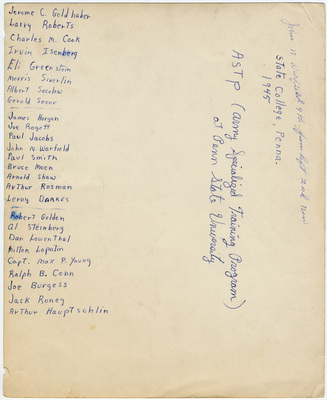 Jerome C. Goldhaber
Larry Roberts
Charles M. Cook
Irvin Isenberg
Eli Greenstein
Morris Siverlin
Albert Socolow
Gerald Secor
James Horgan
Joe Rogoff
Paul Jacobs
John N. Warfield
Paul Smith
Bruce Moen
Arnold Shaw
Arthur Rosman
Leroy DARKES
Robert Golden
al Steinberg
Dan Lowenthal
Milton Lopatin
Capt. Max P. Young
Ralph B. Conn
Joe Burgess
Jack Roney
Arthur Hauptschlin
ASTP (Army Specialized Training Program)
at Penn State University
State College, Penna.
1945
John N Warfield 4th from left 2nd row